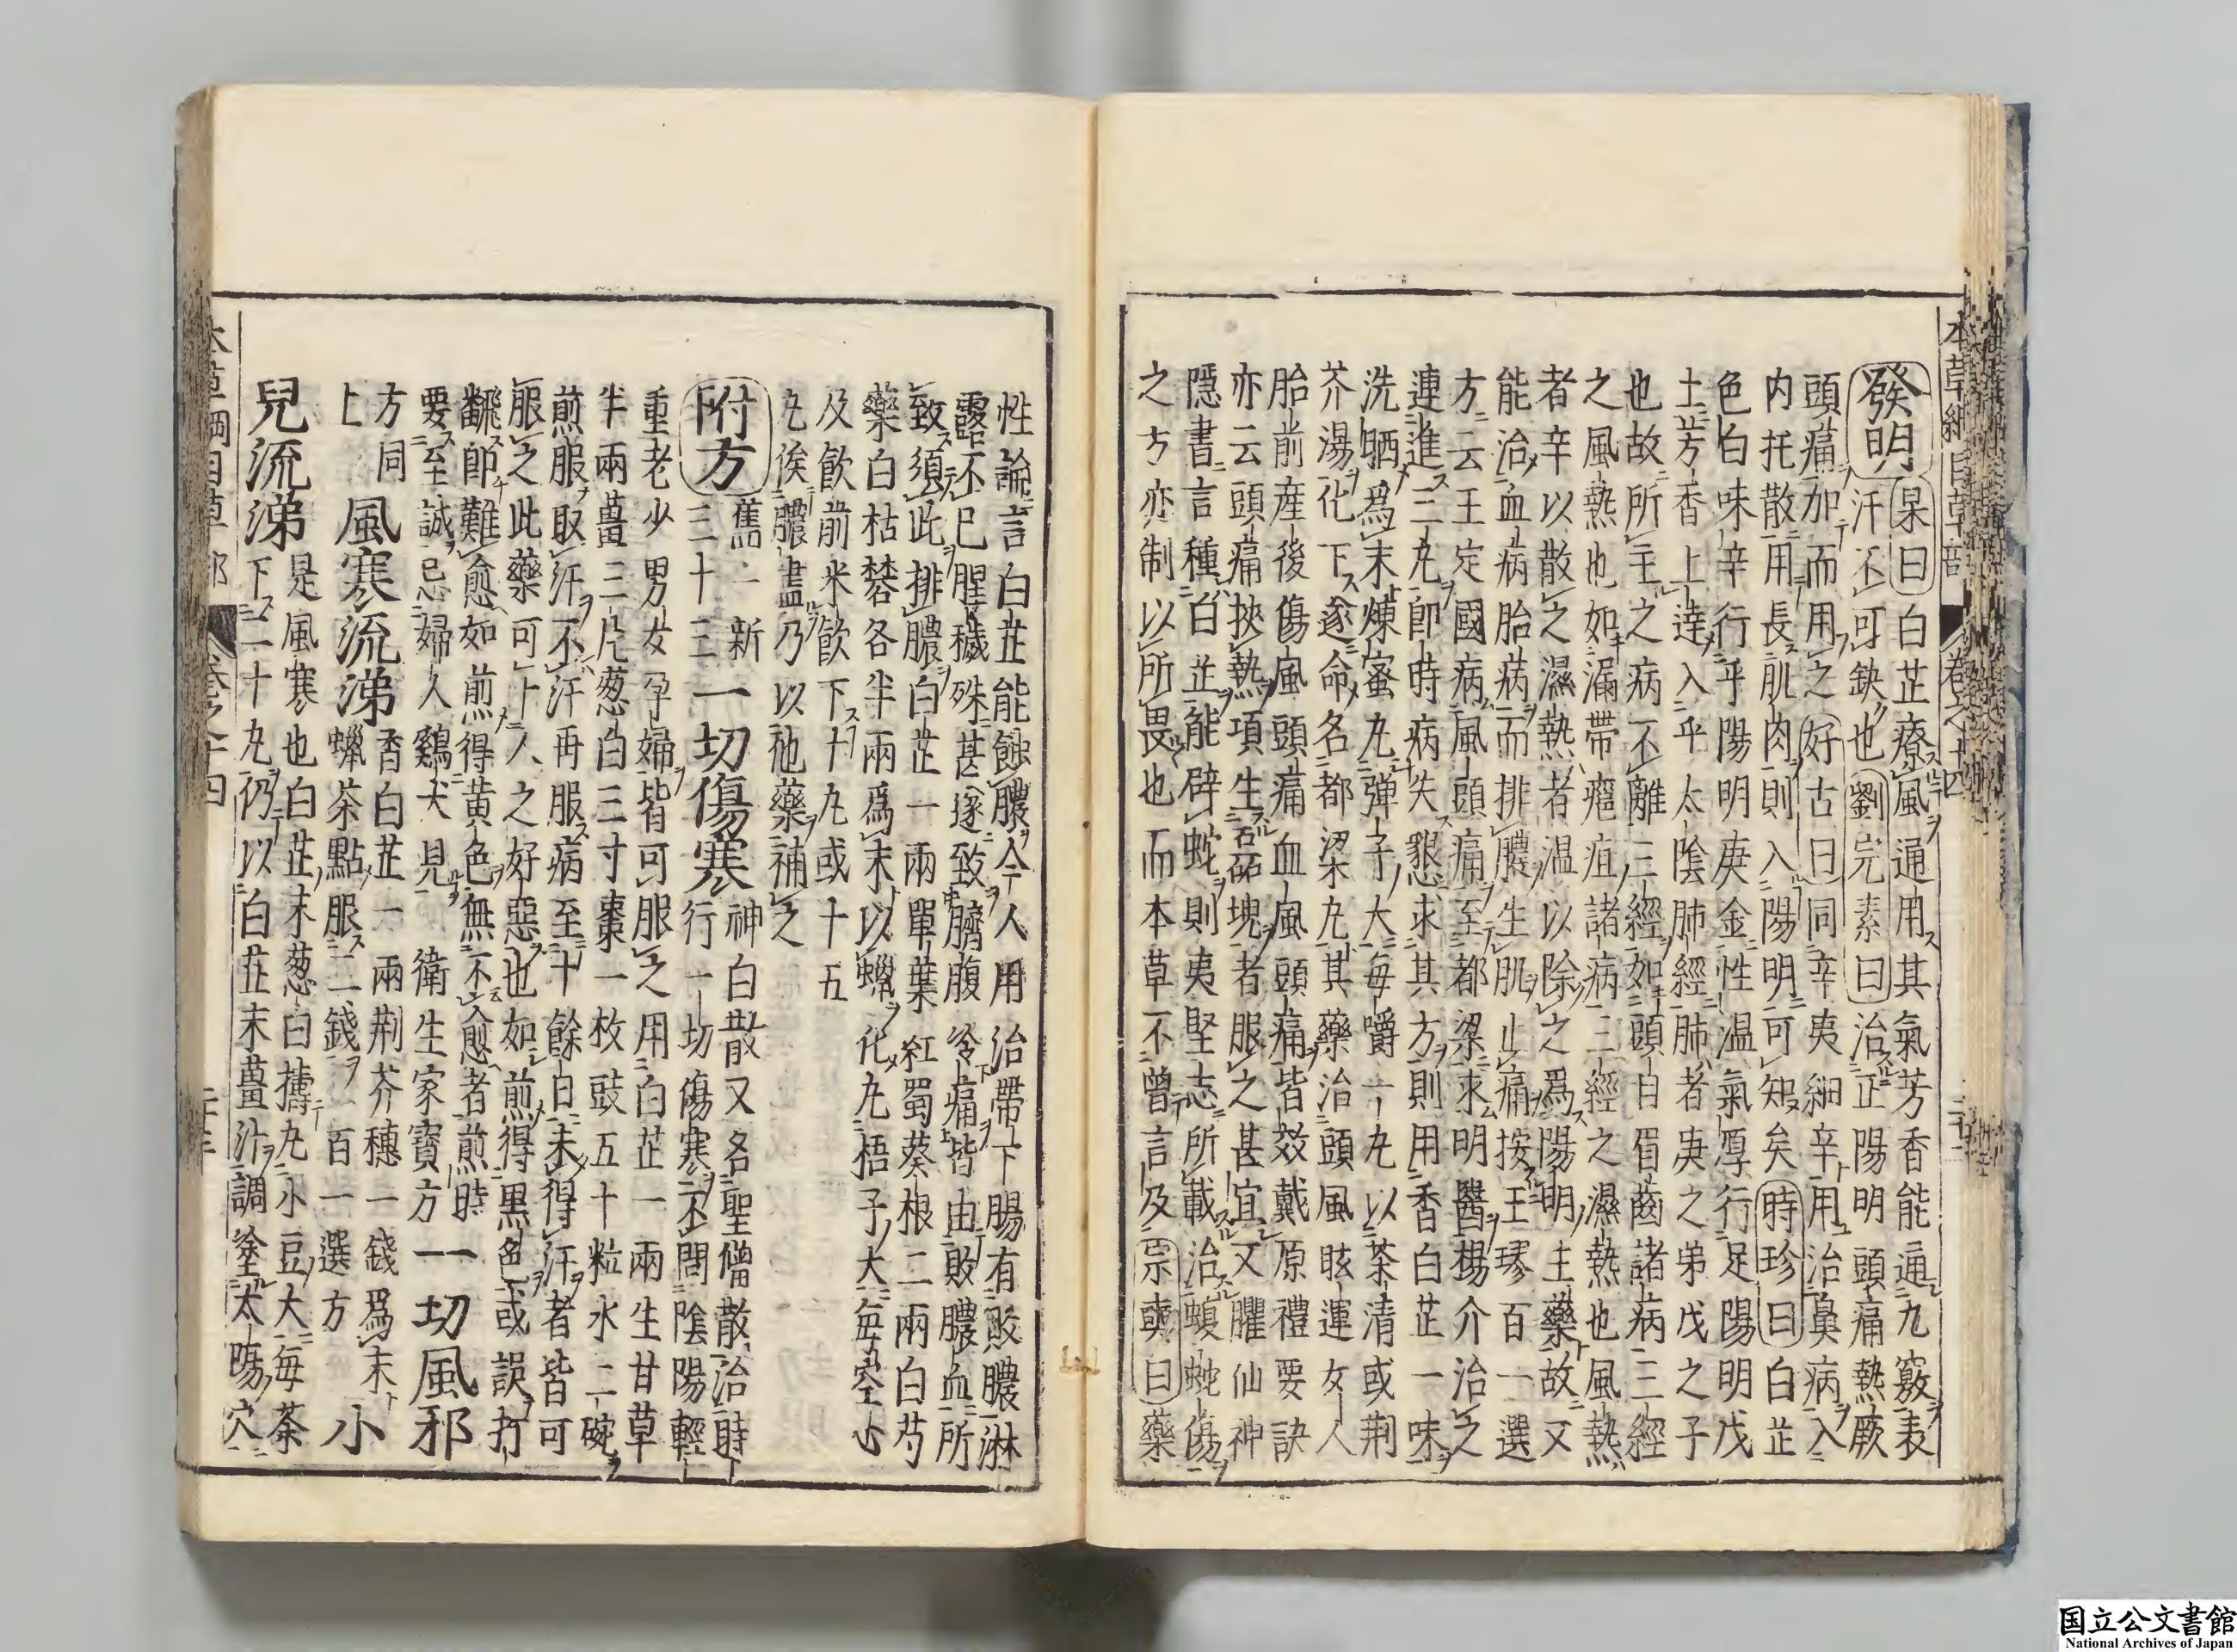 本草綱目草部 卷之十四
發明 杲曰白芷療風通用其氣芳香能通九竅表
汗不可缺也劉完素曰治正陽明頭痛熱厥
頭痛加而用之好古曰同辛夷細辛用治鼻病入
内托散用長肌肉則入陽明可知矣時珍曰白芷
色白味辛行乎陽明庚金性温氣厚行足陽明戊
土芳香上達入乎太陰肺經肺者庚之弟戊之子
也故所主之病不離三經如頭目眉齒諸病三經
之風熱也如漏帶癰疽諸病三經之濕熱也風熱
者辛以散之濕熱者温以除之爲陽明主藥故又
能治血病胎病而排膿生肌止痛按王璆百一選
方云王定國病風頭痛至都梁求明醫楊介治之
連進三九即時病失懇求其方則用香白芷一味
洗晒爲末煉蜜九彈子大每嚼一九以茶清或荆
芥湯化下遂命名都梁九其藥治頭風眩運女人
胎前産後傷風頭痛血風頭痛皆效戴原禮要訣
亦云頭痛挾熱項生磊砢塊者服之甚宜又臞仙神
隱書言種白芷能辟蛇則夷堅志所載治蝮蛇傷
之方亦制以所畏也而本草不曾言及宗奭曰藥
性論言白芷能蝕膿今人用治帶下腸有敗膿淋
露不已腥穢殊甚遂致臍腹冷痛皆由敗膿血所
致須此排膿白芷一兩單葉紅蜀葵根二兩白芍
藥白枯礬各半兩爲末以蠟化九梧子大每空心
及飮前米飮下十九或十五
九俟膿盡乃以他藥補之
附方 舊一新三十三 一切傷寒 神白散又名聖僧散治時
行一切傷寒不問陰陽輕
重老少男女孕婦皆可服之用白芷一兩生甘草
半兩薑三片葱白三寸棗一枚豉五十粒水二碗
煎服取汗不汗再服病至十餘日未得汗者皆可
服之此藥可卜人之好惡也如煎得黑色或誤打
翻即難愈如煎得黄色無不愈者煎時
要至誠忌婦人鷄犬見 衛生家寳方 一切風邪
方同
上 風寒流涕 香白芷一兩荆芥穗一錢爲末
蠟茶點服二錢 百一選方 小
兒流涕 是風寒也白芷末葱白擣九小豆大每茶
下二十九仍以白芷末薑汁調塗太陽穴
本草綱目草部 卷之十四
国立公文書館
National Archives of Japan